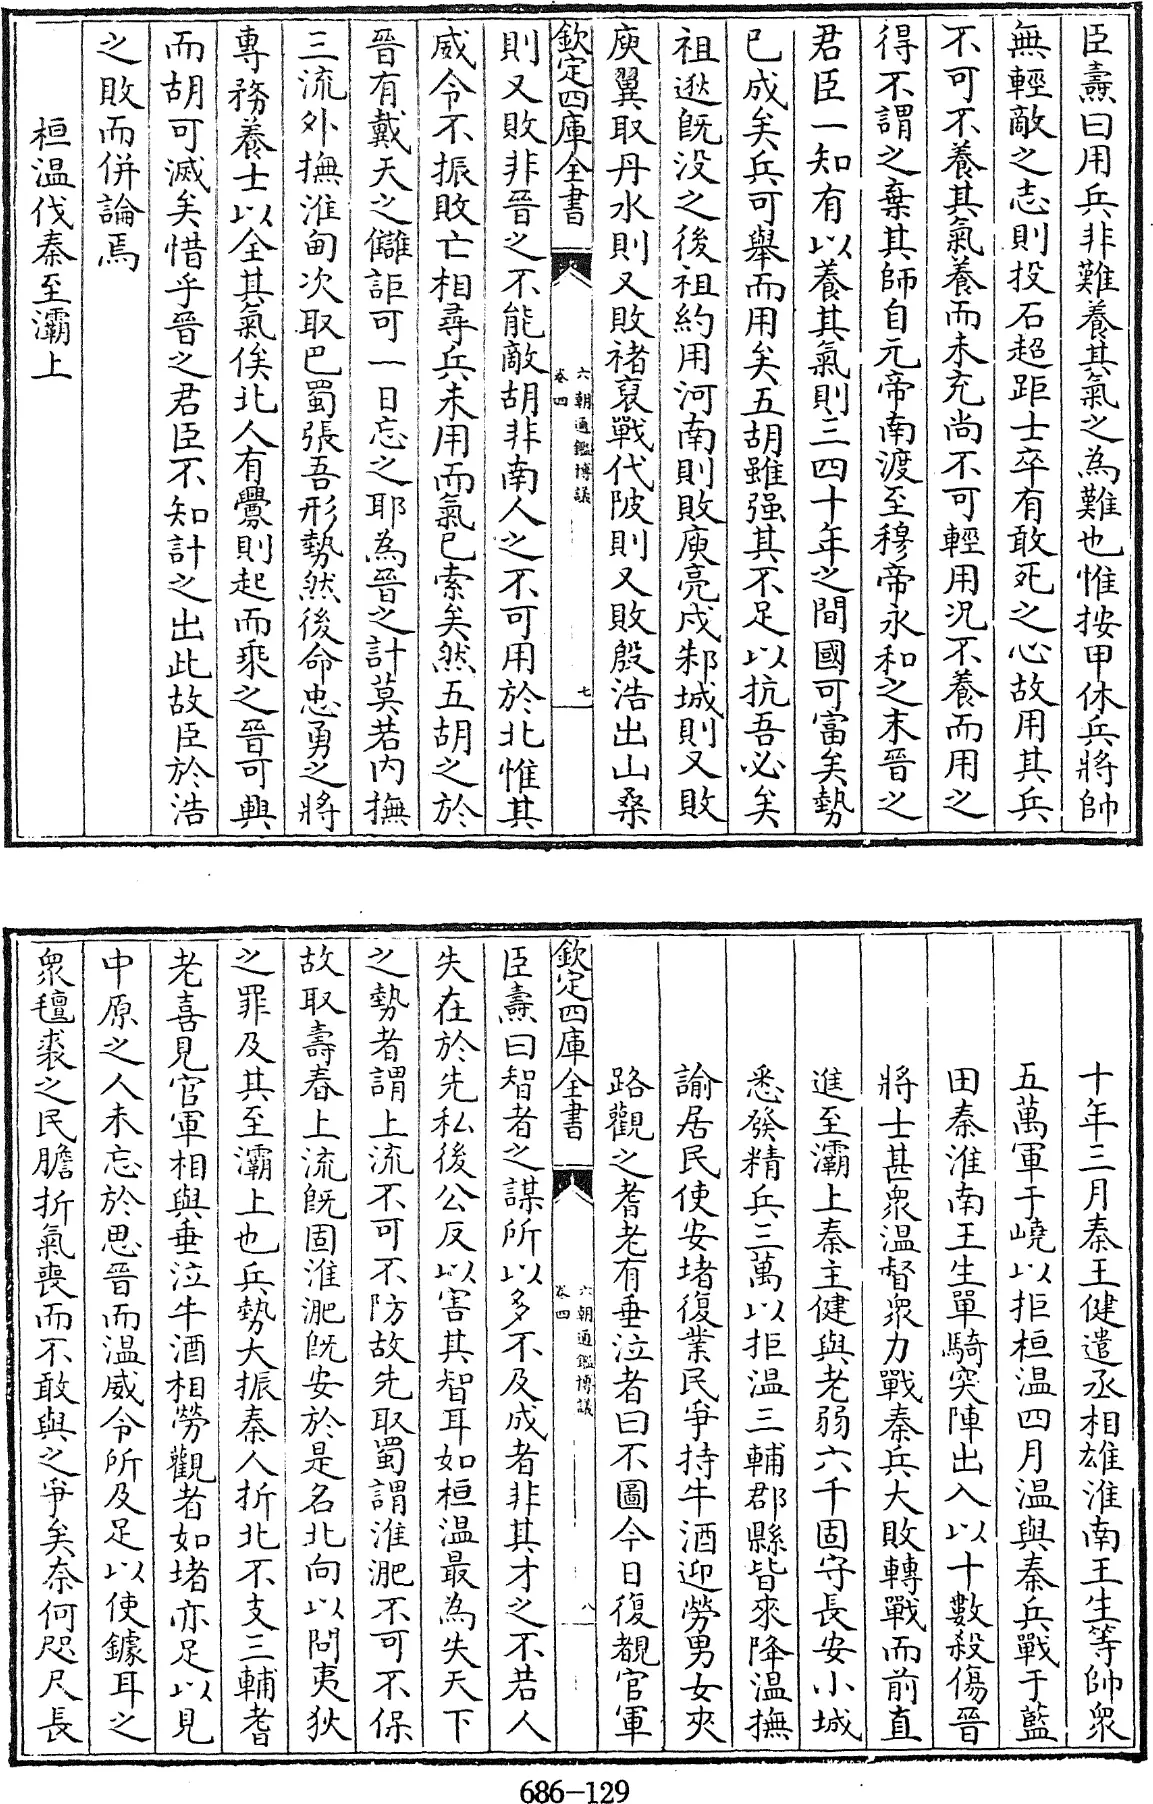 臣燾曰用兵非難養其氣之為難也惟按甲休兵將帥
無輕敵之志則投石超距士卒有敢死之心故用其兵
不可不養其氣養而未充尚不可輕用況不養而用之
得不謂之棄其師自元帝南渡至穆帝永和之末晉之
君臣一知有以養其氣則三四十年之間國可富矣勢
已成矣兵可舉而用矣五胡雖强其不足以抗吾必矣
祖逖旣没之後祖約用河南則敗庾亮戍邾城則又敗
庾翼取丹水則又敗禇裒戰代陂則又敗殷浩出山桑
欽定四庫全書
六朝通鑑博議
卷四
七
則又敗非晉之不能敵胡非南人之不可用於北惟其
威令不振敗亡相尋兵未用而氣已索矣然五胡之於
晉有戴天之讎詎可一日忘之耶為晉之計莫若内撫
三流外撫淮甸次取巴蜀張吾形勢然後命忠勇之將
專務養士以全其氣俟北人有釁則起而乘之晉可興
而胡可滅矣惜乎晉之君臣不知計之出此故臣於浩
之敗而併論焉
桓温伐秦至灞上
十年三月秦王健遣丞相雄淮南王生等帥衆
五萬軍于嶢以拒桓温四月温與秦兵戰于藍
田秦淮南王生單騎突陣出入以十數殺傷晉
將士甚衆温督衆力戰秦兵大敗轉戰而前直
進至灞上秦主健與老弱六千固守長安小城
悉發精兵三萬以拒温三輔郡縣皆來降温撫
諭居民使安堵復業民爭持牛酒迎勞男女夾
路觀之耆老有垂泣者曰不圖今日復覩官軍
欽定四庫全書
六朝通鑑博議
卷四
八
臣燾曰智者之謀所以多不及成者非其才之不若人
失在於先私後公反以害其智耳如桓温最為失天下
之勢者謂上流不可不防故先取蜀謂淮淝不可不保
故取壽春上流旣固淮淝旣安於是名北向以問夷狄
之罪及其至灞上也兵勢大振秦人折北不支三輔耆
老喜見官軍相與垂泣牛酒相勞觀者如堵亦足以見
中原之人未忘於思晉而温威令所及足以使鐻耳之
衆氊裘之民膽折氣喪而不敢與之爭矣奈何咫尺長
686-129